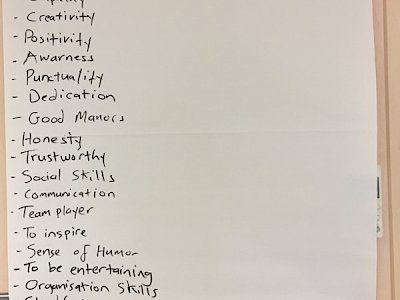 - Creativity
- Positivity
- Awarness
- Punctuality
- Dedication
- Good Manors
- Honesty
- Trustworthy
- Social Skills
- Communication
- Team player
- To inspire
- Sense of Humor
- To be entertaining
- Organisation Skills